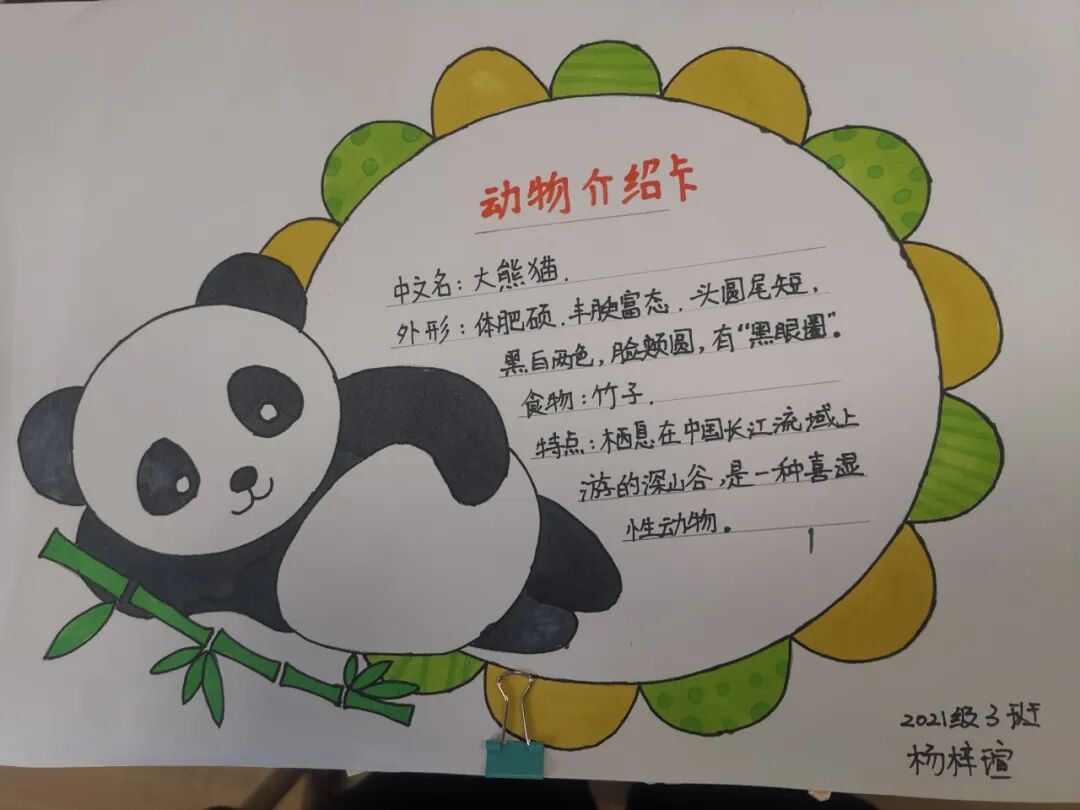 动物介绍卡
中文名：大熊猫.
外形：体肥硕.丰腴富态.头圆尾短，
黑白两色，脸颊圆，有“黑眼圈”。
食物：竹子.
特点：栖息在中国长江流域上
游的深山谷，是一种喜湿
性动物。
2021级3班
杨梓瑄